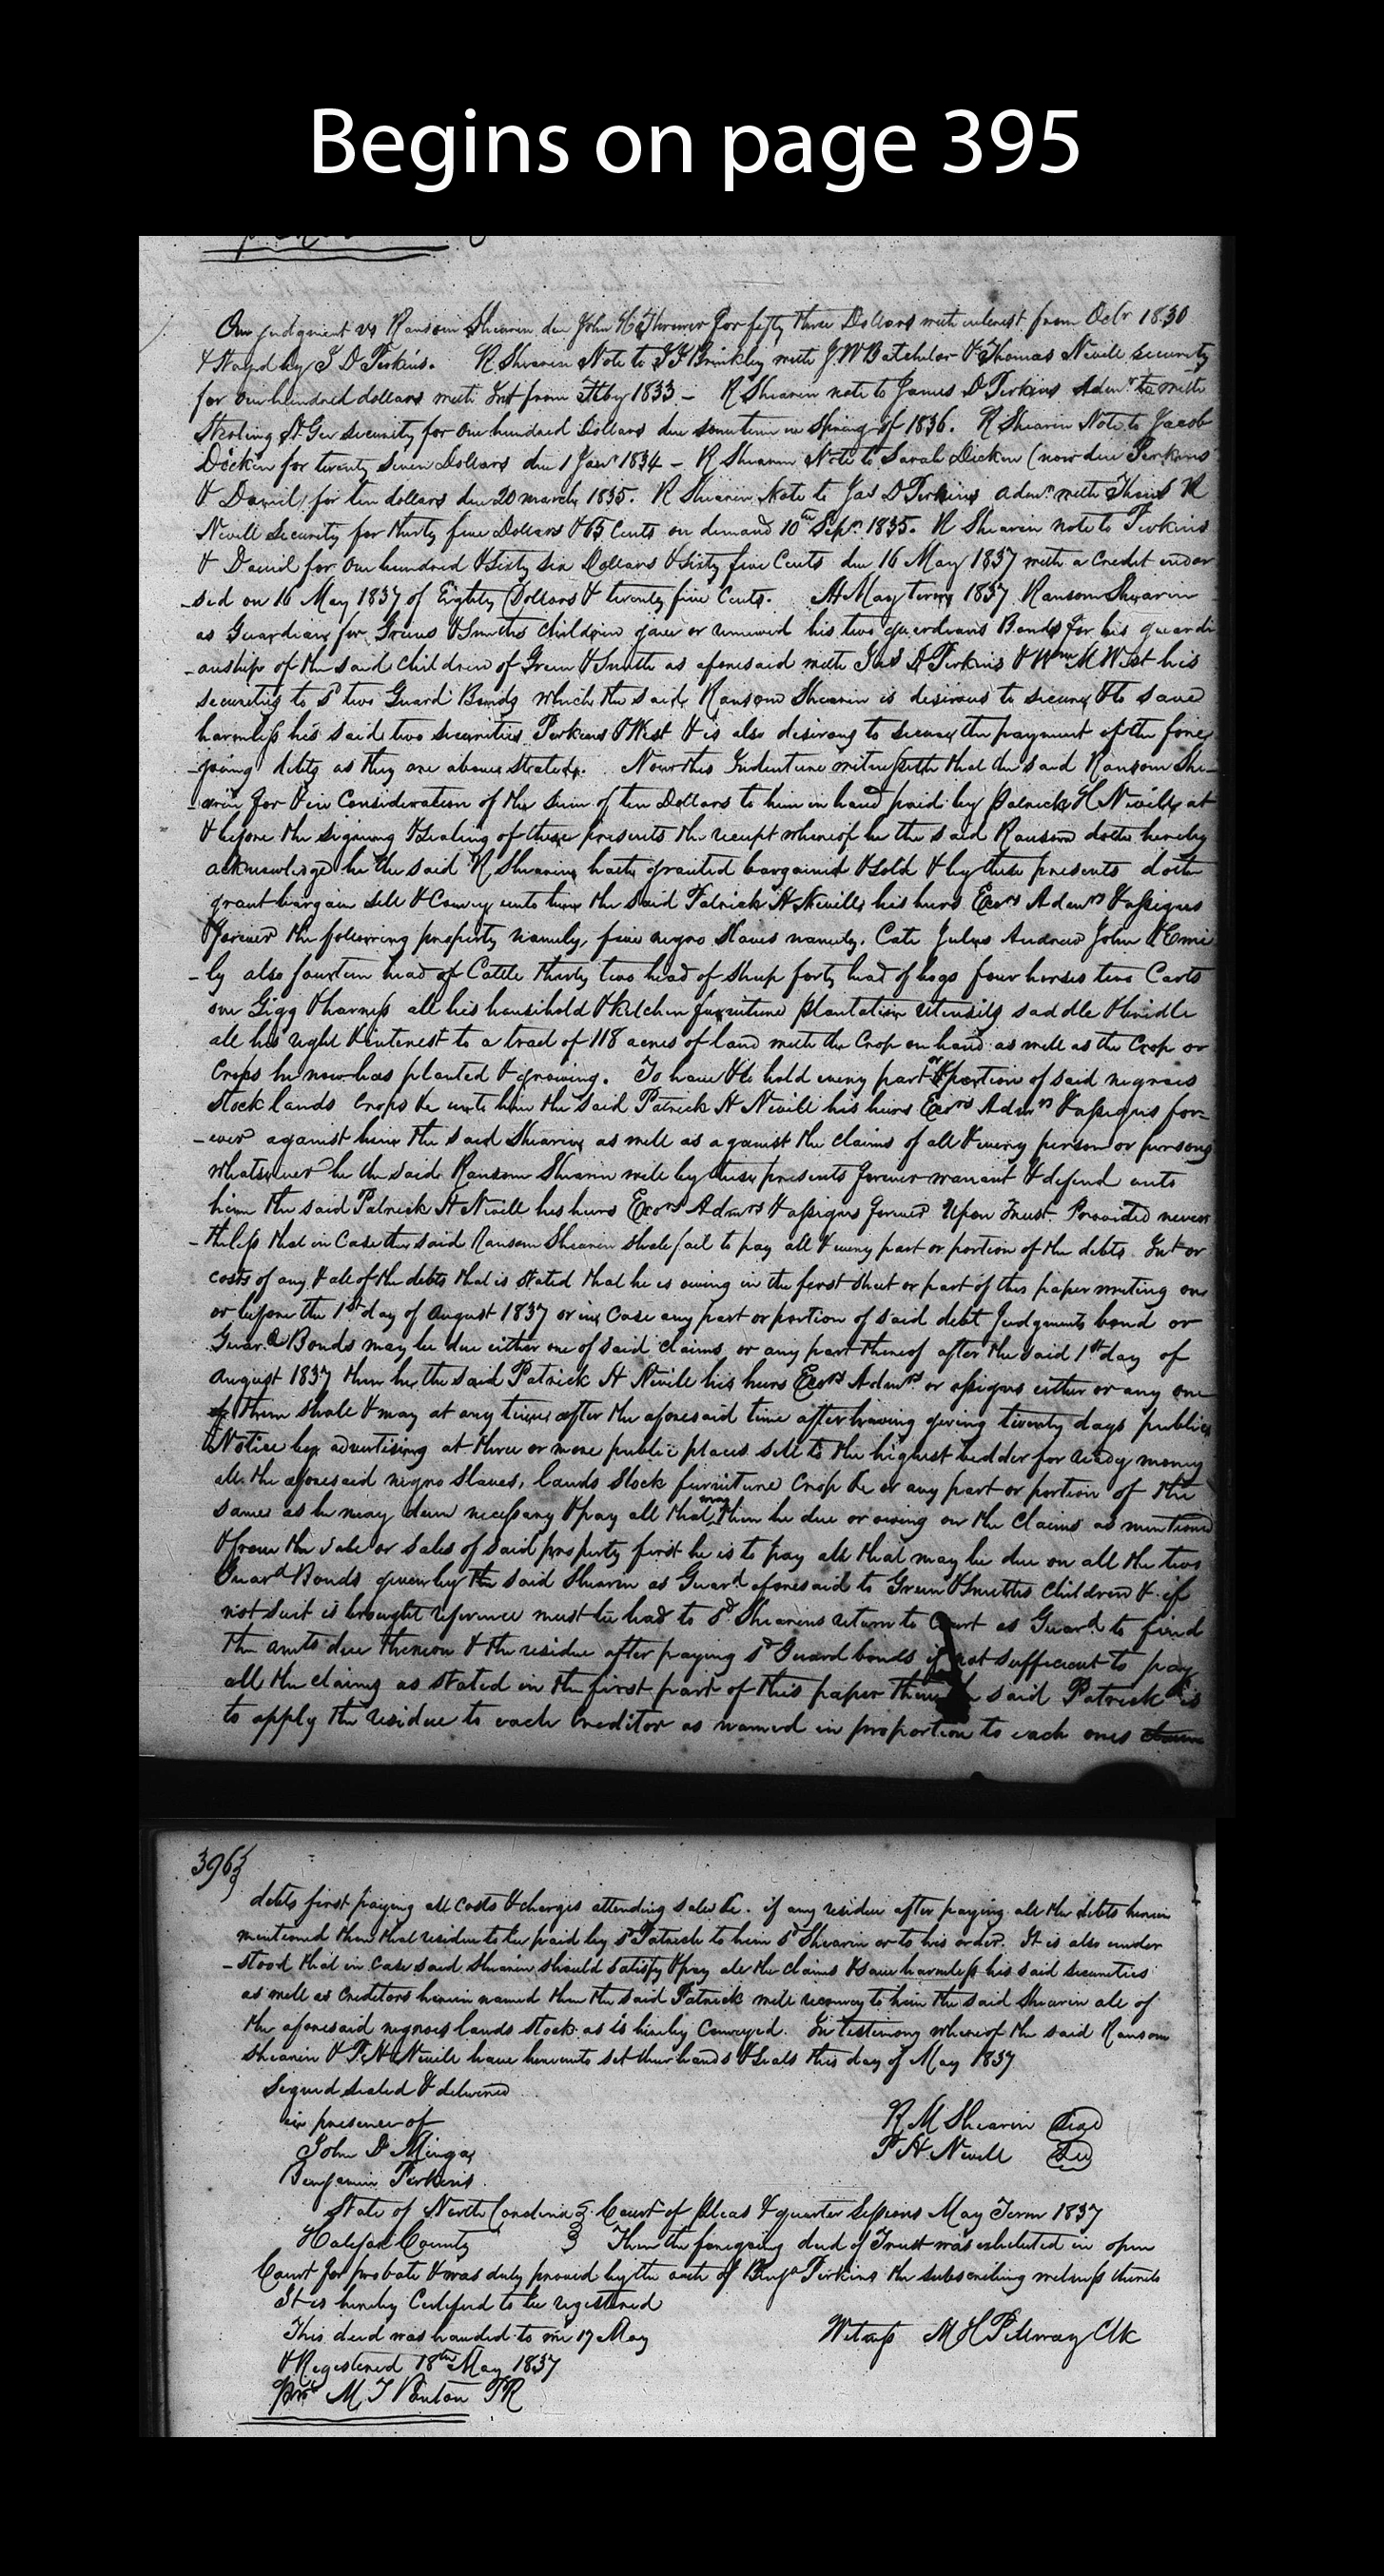 Begins on page 395
One judgment vs Ransom Shearin due John H Thrower for fifty three Dollars with interest from Octr 1830
& Stayd by J D Perkins. R Shearin Note to Brinkley with J W Batchelor & Thomas Nevill security
for one hundred dollars with Int from Feby 1833 - R Shearin note to James D Perkins Admr with
Sterling security for one hundred Dollars due sometime in Spring of 1836. R Shearin Note to Jacob
Dicken for twenty seven Dollars due 1 Jany 1834 - R Shearin Note to Sarah Dicken (now due Perkins
& Daniel) for ten dollars due 20 march 1835. R Shearin Note to Jas D Perkins admr with R
Nevill Security for thirty five Dollars & 63 Cents on demand 10th Sepr 1835. R Shearin note to Perkins
& Daniel for one hundred & sixty six Dollars & sixty five Cents due 16 May 1837 with a credit endor
-sed on 16 May 1837 of Eighty Dollars & twenty five Cents. At May term 1837 Ransom Shearin
as Guardian for Greens & Smiths children gave or renewed his two guardians Bonds for his guardi
-anship of the said children of Green & Smith as aforesaid with Jas D Perkins & Wm M West his
securities to sd two Guard Bonds which the said Ransom Shearin is desirous to secure & to save
harmless his said two securities Perkins & West & is also desirous to secure the payment of the fore
-going debts as they are above stated. Now this Indenture witnesseth that the said Ransom She-
-arin for & in Consideration of the sum of ten Dollars to him in hand paid by Patrick H Nevill at
& before the signing & sealing of these presents the receipt whereof he the said Ransom doth hereby
acknowledge he the said R Shearin hath granted bargained & sold & by these presents doth
grant bargain sell & Convey unto him the said Patrick H Nevill his heirs Exors Admrs & assigns
forever the following property namely, five negro slaves namely. Cate Julys Andrew John & Emi
-ly also fourteen head of Cattle thirty two head of sheep forty head of hogs four horses two Carts
one Gigg & harness all his household & kitchen furniture plantation utensils saddle & bridle
all his right & interest to a tract of 118 acres of land with the Crop on hand as well as the Crop or
Crops he now has planted & growing. To have & to hold every part or portion of said negroes
stock lands crops &c unto him the said Patrick H Nevill his heirs Exors Admrs & assigns for=
-ever against him the said Shearin as well as against the claims of all & every person or persons
whatsoever he the said Ransom Shearin will by these presents forever warrant & defend unto
him the said Patrick H Nevill his heirs Exors Admrs & assigns forever Upon Trust. Provided never
-theless that in Case the said Ransom Shearin shall fail to pay all & every part or portion of the debts Int or
costs of any & all of the debts that is stated that he is owing in the first sheet or part of this paper writing on
or before the 1st day of August 1837 or in Case any part or portion of said debt Judgments bond or
Guard Bonds may be due either one of said claims or any part thereof after the said 1st day of
August 1837 then he the said Patrick H Nevill his heirs Exors Admrs or assigns either or any one
of them shall & may at any time after the aforesaid time after having giving twenty days public
Notice by advertising at three or more public places sell to the highest bidder for ready money
all the aforesaid negro slaves, lands stock furniture Crop &c or any part or portion of the
same as he may deem necessary & pay all that may then be due or owing on the claims as mentioned
& from the sale or sales of said property first he is to pay all that may be due on all the two
Guard Bonds given by the said Shearin as Guard aforesaid to Green & Smiths children & if
not suit is brought reference must be had to sd Shearins return to Court as Guard to find
the amts due thereon & the residue after paying sd Guard bonds if not sufficient to pay
all the claims as stated in the first part of this paper then the said Patrick is
to apply the residue to each Creditor as named in proportion to each ones
396
debts first paying all costs & charges attending sale &c. if any residue after paying all the debts herein
mentioned then that residue to be paid by sd Patrick to him sd Shearin or to his order. It is also under
-stood that in Case said Shearin should satisfy & pay all the claims & save harmless his said securities
as well as Creditors herein named then the said Patrick will reconvey to him the said Shearin all of
the aforesaid negroes lands stock as is hereby Conveyed. In testimony whereof the said Ransom
Shearin & P H Nevill have hereunto set their hands & seals this day of May 1837
Signed sealed & delivered
in presence of
R M Shearin Seal
John D Minga
P H Nevill Seal
Benjamin Perkins
State of North Carolina } Court of Pleas & quarter Sessions May Term 1837
Halifax County } Then the foregoing deed of Trust was exhibited in open
Court for probate & was duly proved by the oath of Benja Perkins the subscribing witness thereto
It is hereby Certified to be registered
This deed was handed to me 17 May
Witness M H Pettway Clk
& Registered 18th May 1837
M T Ponton PR